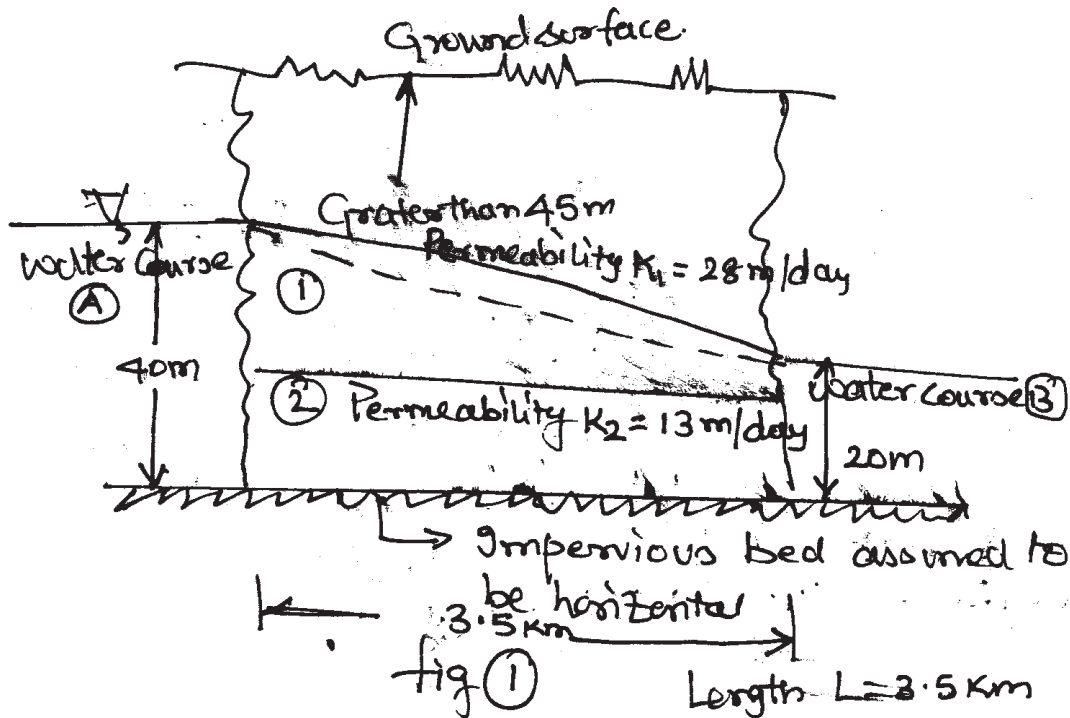 Ground surface.
Graterthan 45m
Permeability K1 = 28m/day
Walter Course
A
1
40m
2 Permeability K2 = 13m/day
Water course B
20m
Impervious bed assumed to
be horizontal
3.5 Km
fig 1
Length L=3.5 Km